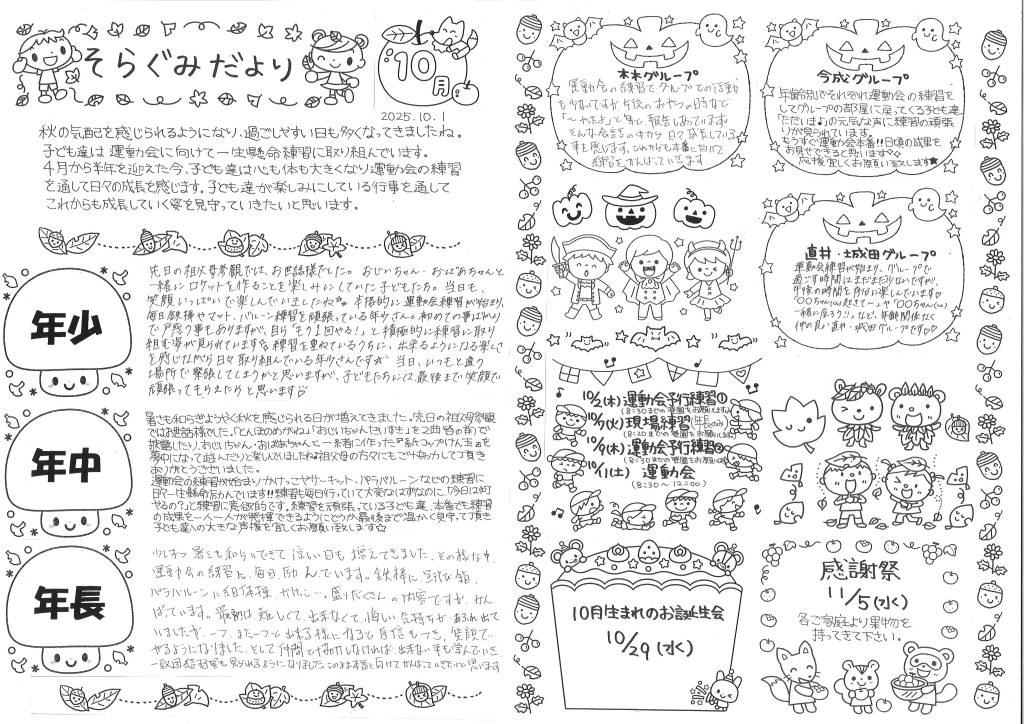 そらぐみだより
10月
2025.10.1
秋の気配を感じられるようになり、過ごしやすい日も多くなってきましたね。
子ども達は運動会に向けて一生懸命練習に取り組んでいます。
4月から半年を迎えた今、子ども達は心も体も大きくなり運動会の練習
を通して日々の成長を感じます。子ども達が楽しみにしている行事を通して
これからも成長していく姿を見守っていきたいと思います。
年少
先日の祖父母参観では、お世話様でした。おじいちゃん・おばあちゃんと
一緒にロケットを作ることを楽しみにしていた子どもたち。当日も、
笑顔いっぱいで楽しんでいましたね。本格的に運動会練習が始まり、
毎日鉄棒やマット、バルーン練習を頑張っている年少さん。初めての事ばかり
で戸惑う事もありますが、自ら「もう1回やる!」と積極的に練習に取り
組む姿が見られています。練習を重ねているうちに、出来るようになる楽しさ
を感じながら日々取り組んでいる年少さんです☆ 当日、いつもと違う
場所で緊張してしまうかと思いますが、子どもたちには最後まで笑顔で
頑張ってもらえたらと思います♡
年中
暑さも和らぎようやく秋を感じられる日が増えてきました。先日の祖父母参観
ではお世話様でした。「とんぼのめがね」「おじいちゃんだいすき」を2曲
披露したり、おじいちゃん、おばあちゃんと一緒に作った『紙コップけん玉』を
夢中になって遊んだりと楽しんでいましたね。祖父母の方々にもご協力して頂き
ありがとうございました。
運動会の練習が始まりかけっこやサーキット、パラバルーンなどの練習に
日々一生懸命励んでいます!!練習も毎日行っていて大変なはずなのに「今日は何
やるの?」と練習に意欲的です。練習を頑張っている子ども達、本番でも練習
の成果を一人一人が発揮できるようにどうか最後まで温かく見守って頂き
子ども達への大きな声援を宜しくお願い致します☆
年長
少しずつ暑さも和らいできて涼しい日も増えてきました。その様な中、
運動会の練習に、毎日励んでいます。鉄棒に、跳び箱、
パラバルーンに組体操、かけっこ…盛りだくさんの内容ですが、がん
ばっています。最初は難しくて、出来なくて、悔しい気持ちが、あふれ出て
いましたが、一つ、また一つと出来る様になると自信もつき、笑顔で
やるようになりました。そして仲間と協力しなければ、出来ない事も学んでいき
一致団結する姿も見られるようになりました。このまま本番に向けてがんばっていきたいと思います
木木グループ
運動会の練習でグループでの活動
も少ないですが、午後のおやつの時などで
「〜やったよ」等と報告しあっています。
そんな会話の中から日々成長している
事を感じます。これからも本番に向けて
練習をがんばっていきます。
今成グループ
年齢別でそれぞれ運動会の練習を
してグループの部屋に戻ってくる子ども達。
「ただいま」の元気な声に練習の頑張
りが見られています。
もうすぐ運動会本番!!日頃の成果を
お見せできると思います♡
応援宜しくお願い致します★
直井・城田グループ
運動会練習が始まり、グループで
過ごす時間はまだまだ少ないですが、
午後の時間を存分に楽しんでいます♡
一緒に座ろう!!」など、年齢関係なく
仲の良い直井・城田グループです♡
10/2(木)運動会予行練習①
(8:30までの登園をお願いします)
10/7(火)現場練習(年長のみ)
(8:20までの登園をお願いします)
10/9(木)運動会予行練習②
(8:30までの登園をお願いします)
10/11(土)運動会
(8:30〜12:00)
10月生まれのお誕生会
10/29(水)
感謝祭
11/5(水)
各ご家庭より果物を
持ってきて下さい。